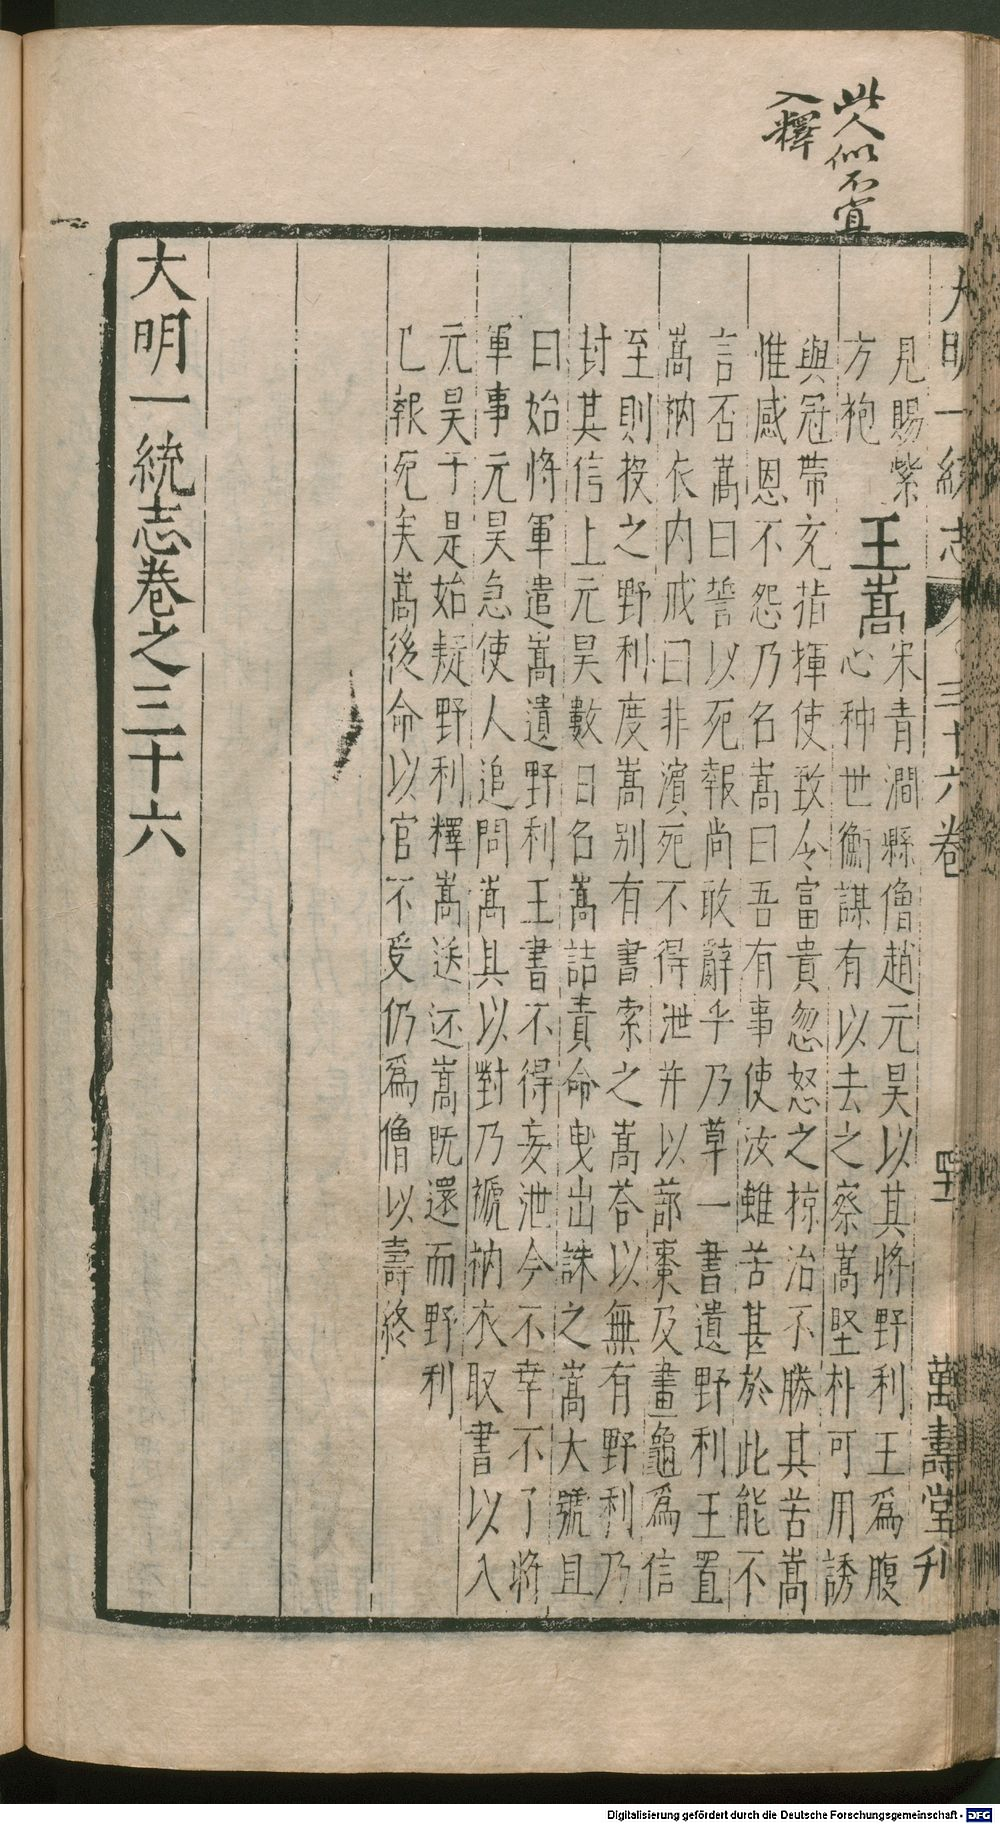 此人似不宜
入釋
大明一統志 三十六卷 萬壽堂刊
見賜紫
方袍
王嵩
宋青澗縣僧趙元昊以其將野利王為腹
心种世衡謀有以去之察嵩堅朴可用誘
與冠帶充指揮使致令富貴忽怒之掠治不勝其苦嵩
惟感恩不怨乃名嵩曰吾有事使汝雖苦甚於此能不
言否嵩曰誓以死報尚敢辭乎乃草一書遺野利王置
嵩衲衣内戒曰非濱死不得泄并以蔀棗及畫龜為信
至則投之野利度嵩別有書索之嵩荅以無有野利乃
封其信上元昊數日名嵩詰責命曳出誅之嵩大號且
曰始將軍遣嵩遺野利王書不得妄泄今不幸不了將
軍事元昊急使人追問嵩具以對乃褫衲衣取書以入
元昊于是始疑野利釋嵩送还嵩既還而野利
已報死矣嵩後命以官不受仍爲僧以壽終
大明一統志卷之三十六
Digitalisierung gefördert durch die Deutsche Forschungsgemeinschaft - DFG